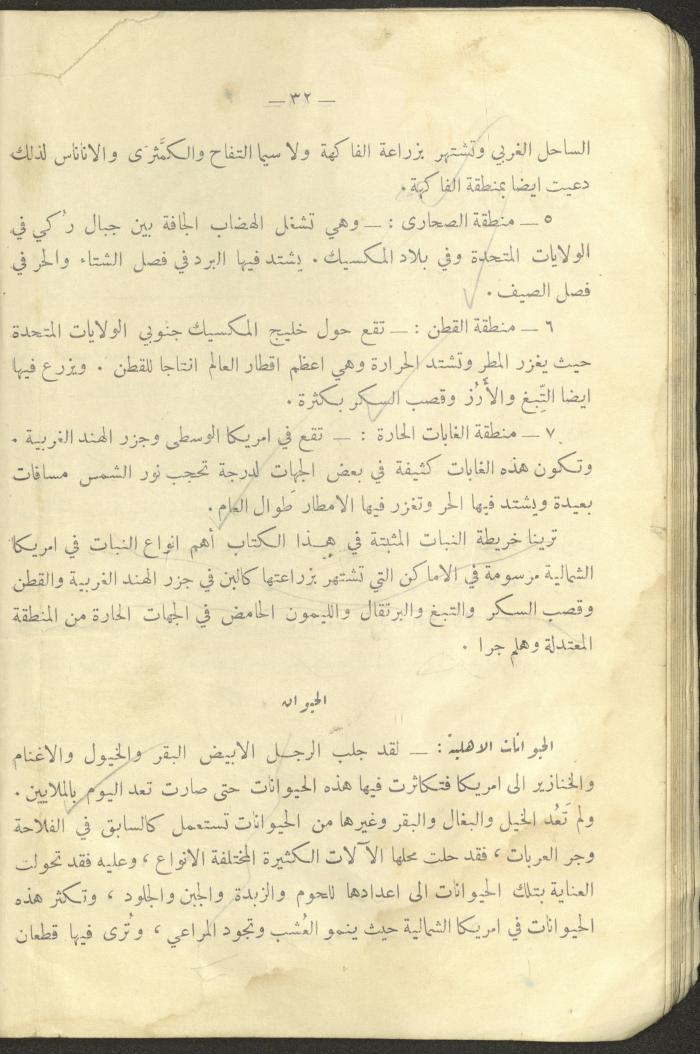 — ٣٢ —
الساحل الغربي وتشتهر بزراعة الفاكهة ولا سيما التفاح والكمَّثرَى والاناناس لذلك
دعيت ايضا بمنطقة الفاكهة .
٥ — منطقة الصحارى : — وهي تشغل الهضاب الجافة بين جبال رُكي في
الولايات المتحدة وفي بلاد المكسيك . يشتد فيها البرد في فصل الشتاء والحر في
فصل الصيف .
٦ — منطقة القطن : — تقع حول خليج المكسيك جنوبي الولايات المتحدة
حيث يغزر المطر وتشتد الحرارة وهي اعظم اقطار العالم انتاجا للقطن . ويزرع فيها
ايضا التِّبغ والأَرُز وقصب السكر بكثرة .
٧ — منطقة الغابات الحارة : — تقع في امريكا الوسطى وجزر الهند الغربية .
وتكون هذه الغابات كثيفة في بعض الجهات لدرجة تحجب نور الشمس مسافات
بعيدة ويشتد فيها الحر وتغزر فيها الامطار طَوال العام .
ترينا خريطة النبات المثبتة في هذا الكتاب أهم انواع النبات في امريكا
الشمالية مرسومة في الاماكن التي تشتهر بزراعتها كالبن في جزر الهند الغربية والقطن
وقصب السكر والتبغ والبرتقال والليمون الحامض في الجهات الحارة من المنطقة
المعتدلة وهلم جرا .
الحيوان
الحيوانات الاهلية : — لقد جلب الرجل الابيض البقر والخيول والاغنام
والخنازير الى امريكا فتكاثرت فيها هذه الحيوانات حتى صارت تعد اليوم بالملايين .
ولم تَعُد الخيل والبغال والبقر وغيرها من الحيوانات تستعمل كالسابق في الفلاحة
وجر العربات ، فقد حلت محلها الآلات الكثيرة المختلفة الانواع ، وعليه فقد تحولت
العناية بتلك الحيوانات الى اعدادها للحوم والزبدة والجبن والجلود ، وتكثر هذه
الحيوانات في امريكا الشمالية حيث ينمو العُشب وتجود المراعي ، وتُرى فيها قطعان